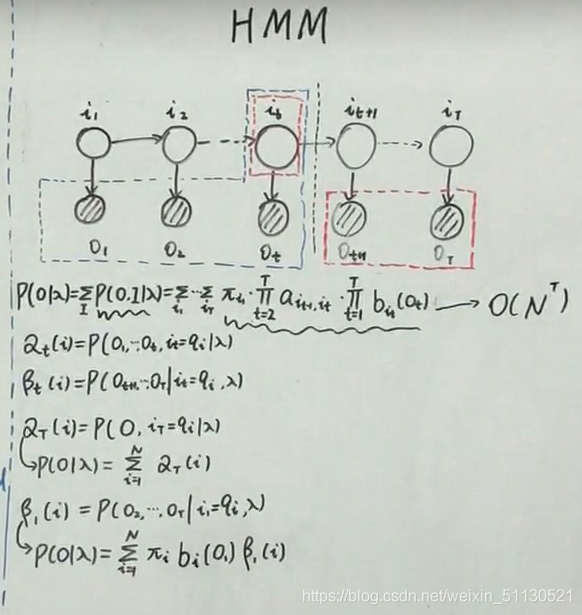 HMM
i₁ i₂ iₜ iₜ₊₁ i_T
O₁ O₂ Oₜ Oₜ₊₁ O_T
P(O|λ)=∑_I P(O,I|λ)=∑_{i₁}…∑_{i_T} π_{i₁}·∏_{t=2}^{T} a_{i_{t-1},i_t}·∏_{t=1}^{T} b_{i_t}(Oₜ) → O(N^T)
αₜ(i)=P(O₁,…Oₜ,iₜ=qᵢ|λ)
βₜ(i)=P(Oₜ₊₁…O_T|iₜ=qᵢ,λ)
α_T(i)=P(O,i_T=qᵢ|λ)
→P(O|λ)=∑_{i=1}^{N} α_T(i)
β₁(i)=P(O₂,…O_T|i₁=qᵢ,λ)
→P(O|λ)=∑_{i=1}^{N} πᵢ bᵢ(O₁) β₁(i)
https://blog.csdn.net/weixin_51130521